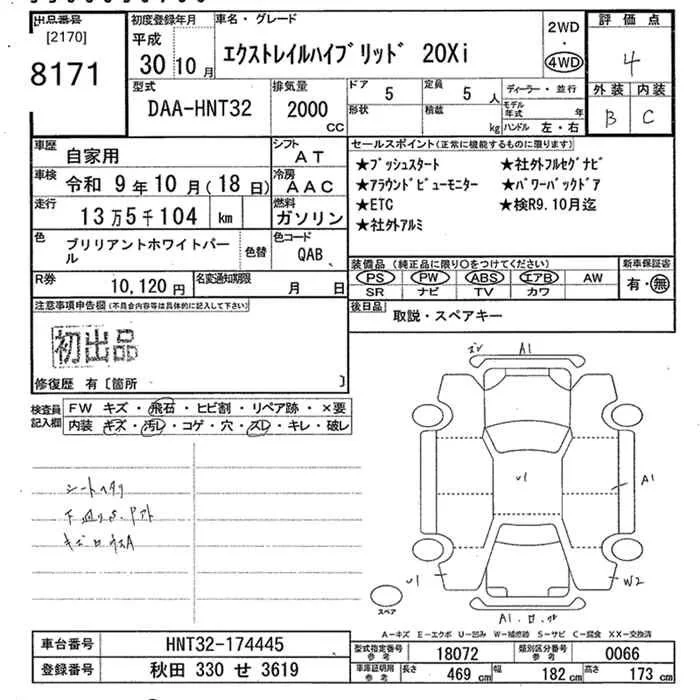 出品番号
[2170]
8171
初度登録年月
平成
30 10 月
車名・グレード
エクストレイルハイブリッド 20Xi
2WD
・
4WD
評価点
4
外装 内装
B C
型式
DAA-HNT32
排気量
2000
CC
ドア
5
定員
5 人
形状
積載
kg
ディーラー・並行
モデル年式 年
ハンドル 左・右
車歴
自家用
シフト
AT
車検
令和 9年10月(18日)
冷房
AAC
走行
13万5千104 km
燃料
ガソリン
色
ブリリアントホワイトパール
色替
色コード
QAB
セールスポイント(正常に機能するものに限ります)
★プッシュスタート ★社外フルセグナビ
★アラウンドビューモニター ★パワーバックドア
★ETC ★検R9.10月迄
★社外アルミ
装備品(純正品に限り○をつけてください)
PS PW ABS エアB AW
SR ナビ TV カワ
新車保証書
有・無
R券
10,120円
名変通知期限
月 日
後日品
取説・スペアキー
注意事項申告欄(不具合内容等は具体的に記入して下さい)
初出品
修復歴 有〔箇所 〕
検査員記入欄
FW キズ・飛石・ヒビ割・リペア跡・×要
内装 キズ・汚レ・コゲ・穴・スレ・キレ・破レ
シートヘタリ
A1
U1
A1
U1
W2
スペア
A1.
A-キズ E-エクボ U-凹み W-補修跡 S-サビ C-腐食 XX-交換済
車台番号
HNT32-174445
登録番号
秋田 330 せ 3619
型式指定番号
参考
18072
類別区分番号
参考
0066
車庫証明用
参考
長さ 469 cm
幅 182 cm
高さ 173 cm